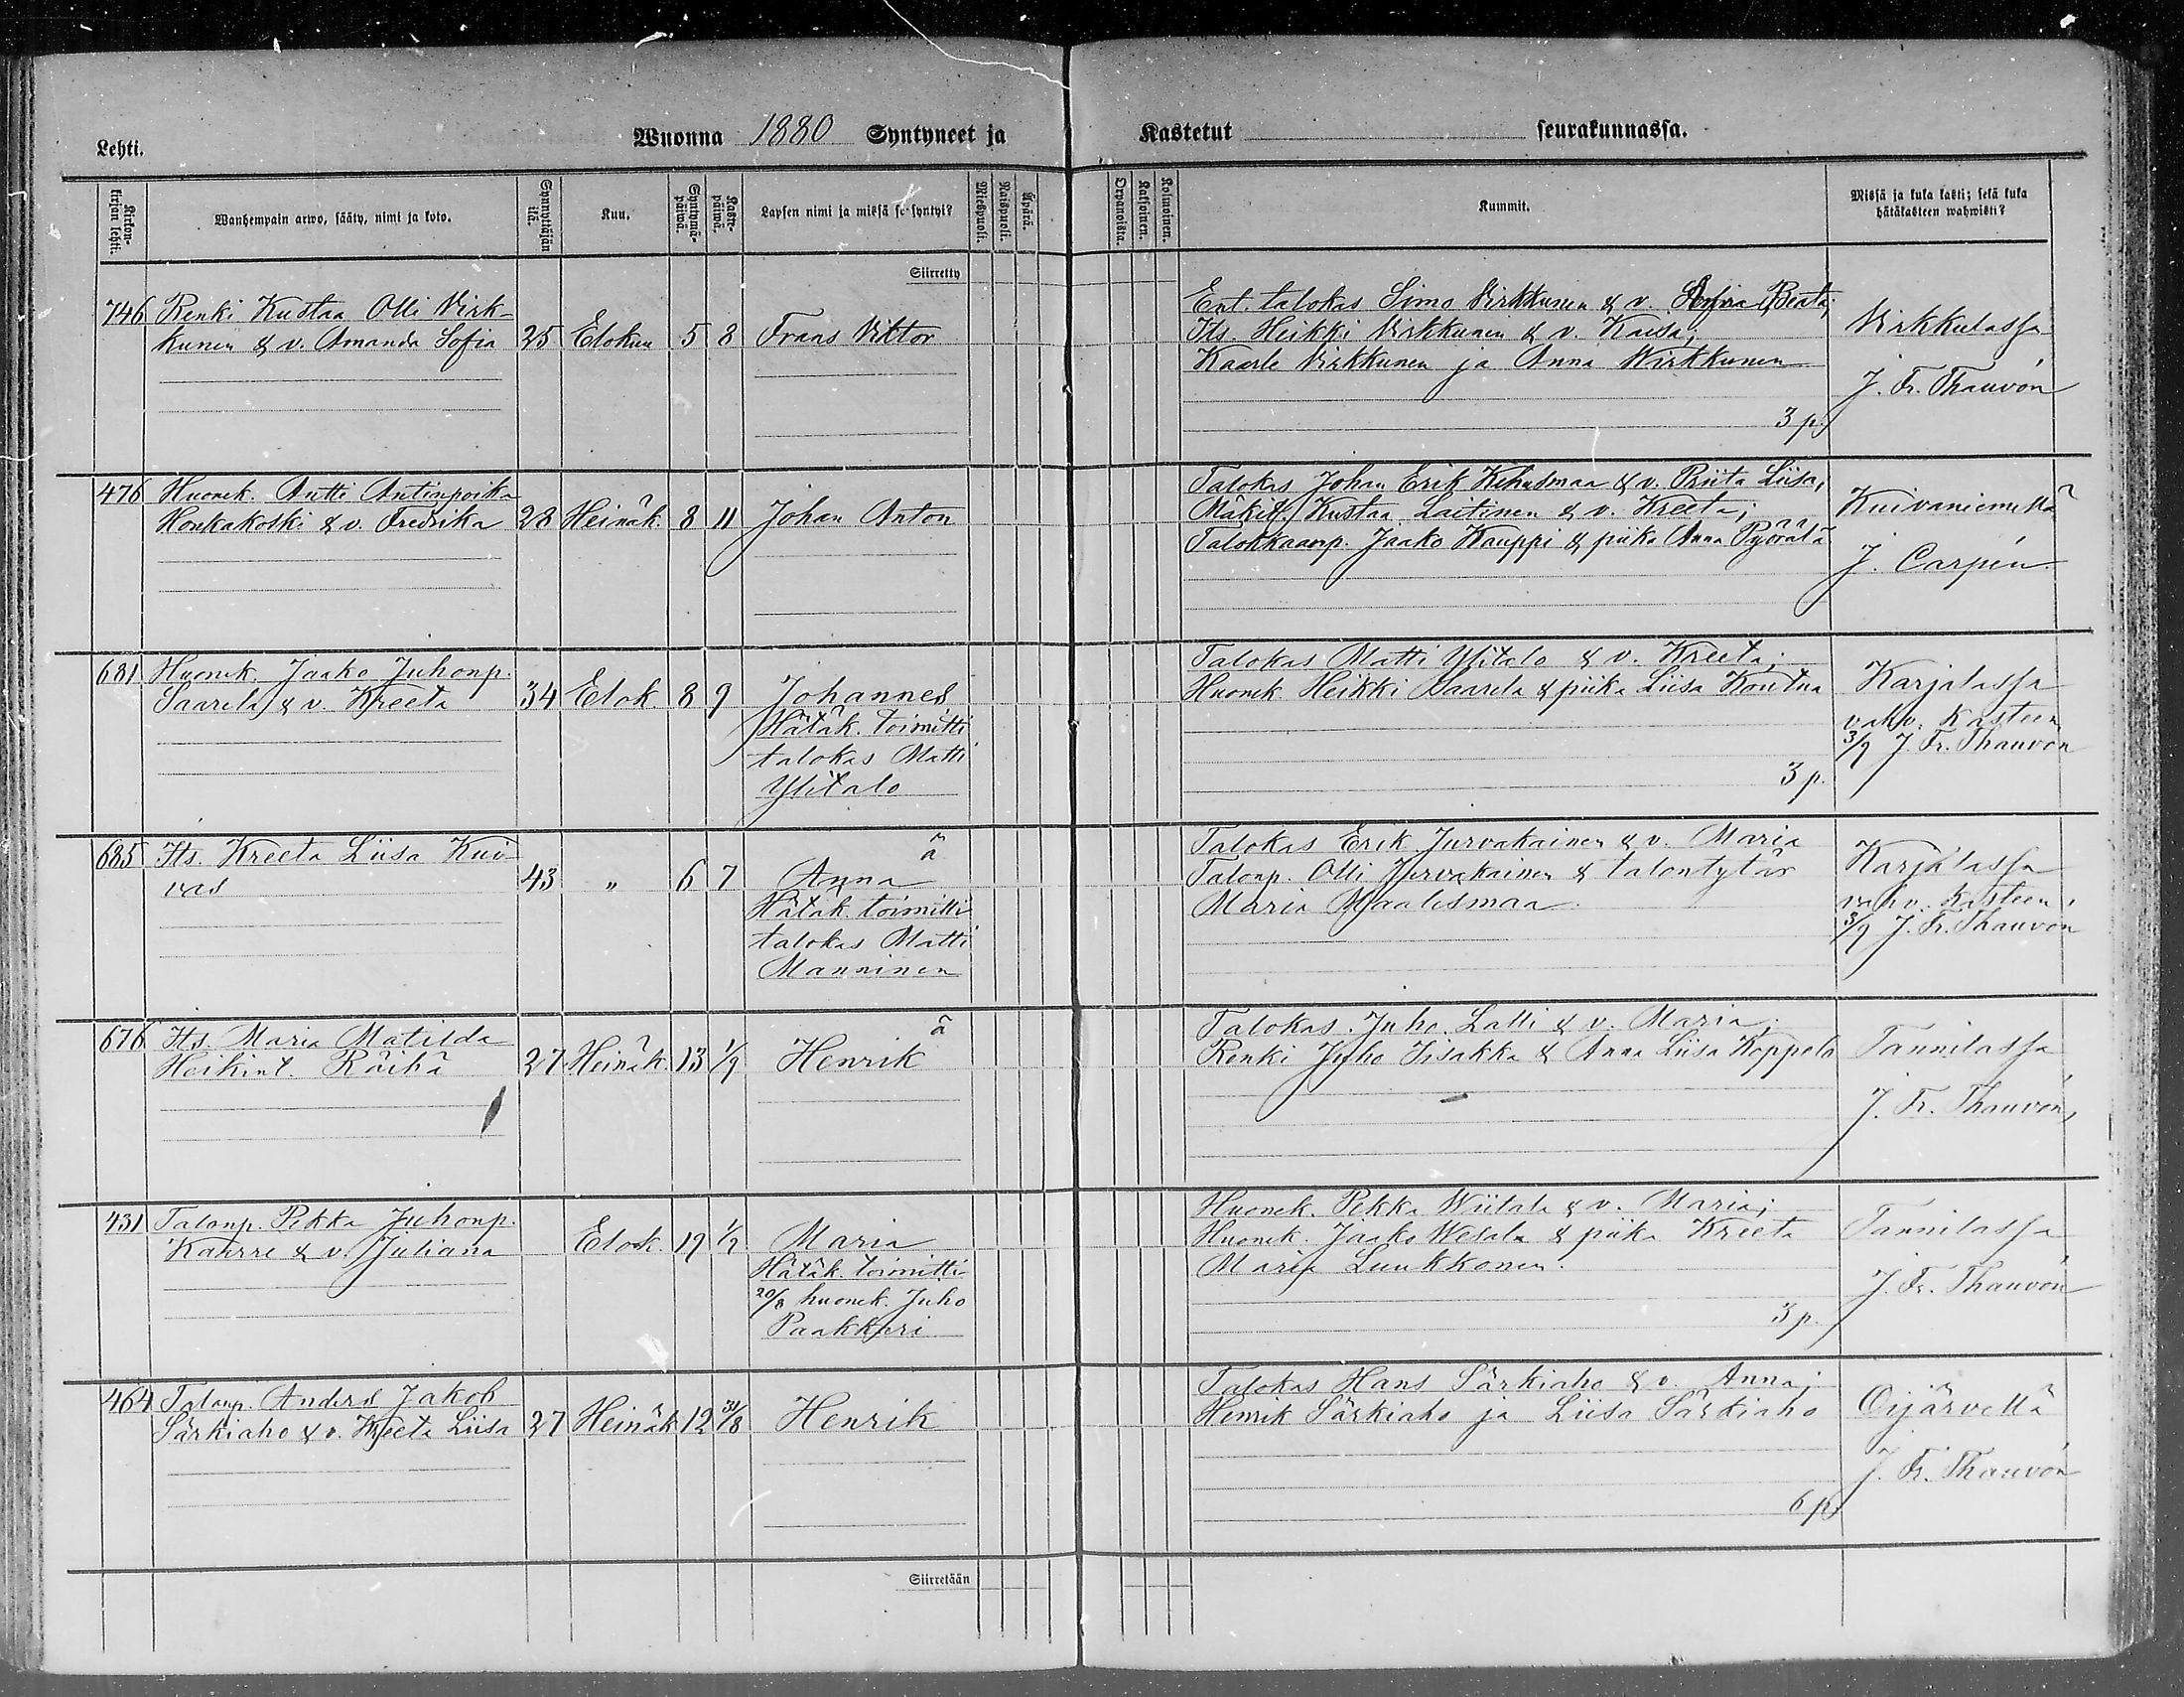 Lehti.
Wuonna 1880 Syntyneet ja
Kastetut seurakunnassa.
Kirkon-kirjan lehti.
Wanhempain arwo, sääty, nimi ja koto.
Synnyttäjän ikä.
Kuu.
Syntymä-päiwä.
Kaste-päiwä.
Lapsen nimi ja missä se syntyi?
Miespuoli.
Waispuoli.
Äpärä.
Orpanoista.
Kaksoinen.
Kolmoinen.
Kummit.
Missä ja kuka kasti; sekä kuka
hätäkasteen wahwisti?
Siirretty
746 Renki Kustaa Olli Virk-
kunen & v. Amanda Sofia 25 Elokuu 5 8 Frans Viktor
Ent. talokas Simo Virkkunen & v. Sofia Beata;
Its. Heikki Virkkunen & v. Kaisa;
Kaarle Virkkunen ja Anna Wirkkunen
3 p.
Virkkulassa
J. Fr. Thauvón
476 Huonek. Antti Antinpoika
Honkakoski & v. Fredrika 28 Heinäk. 8 11 Johan Anton
Talokas Johan Erik Kehusmaa & v. Priita Liisa,
Mäkit. Kustaa Laitinen & v. Kreeta;
Talokkaanp. Jaako Kauppi & piika Anna Pyörälä
Kuivaniemellä
J. Carpén
681 Huonek. Jaako Juhonp.
Saarela & v. Kreeta 34 Elok 8 9 Johannes
Hätäk. toimitti
talokas Matti
Ylitalo
Talokas Matti Ylitalo & v. Kreeta;
Huonek. Heikki Saarela & piika Liisa Kontua
3 p.
Karjalassa
vahv. kasteen
3/9 J. Fr. Thauvón
685 Its. Kreeta Liisa Kui-
vas 43 „ 6 7 Anna
ä
Hätäk. toimitti
talokas Matti
Manninen
Talokas Erik Jurvakainen & v. Maria
Talonp. Olli Jurvakainen & talontytär
Maria Maalismaa.
Karjalassa
vahv. kasteen
3/9 J. Fr. Thauvón
676 Its. Maria Matilda
Heikint. Räihä 27 Heinäk. 13 1/9 Henrik
ä
Talokas Juho Lalli & v. Maria;
Renki Juho Iisakka & Anna Liisa Koppelo
Tannilassa
J. Fr. Thauvón,
431 Talonp. Pekka Juhonp.
Kahrre & v. Juliana Elok. 19 1/9 Maria
Hätäk. toimitti
20/8 huonek. Juho
Paakkari
Huonek. Pekka Wiitala & v. Maria;
Huonek. Jaako Wesala & piika Kreeta
Maria Luukkonen.
3 p.
Tannilassa
J. Fr. Thauvón
464 Talonp. Anders Jakob
Särkiaho & v. Kreeta Liisa 27 Heinäk 12 31/8 Henrik
Talokas Hans Särkiaho & v. Anna;
Henrik Särkiaho ja Liisa Särkiaho
6 p
Oijärvellä
J. Fr. Thauvón
Siirretään